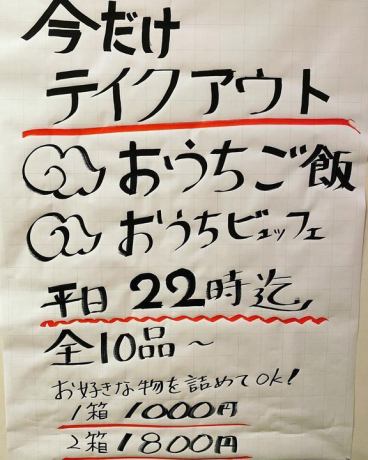 今だけ
テイクアウト
おうちご飯
おうちビュッフェ
平日 22時迄
全10品~
お好きな物を詰めてOK!
1箱 1000円
2箱 1800円